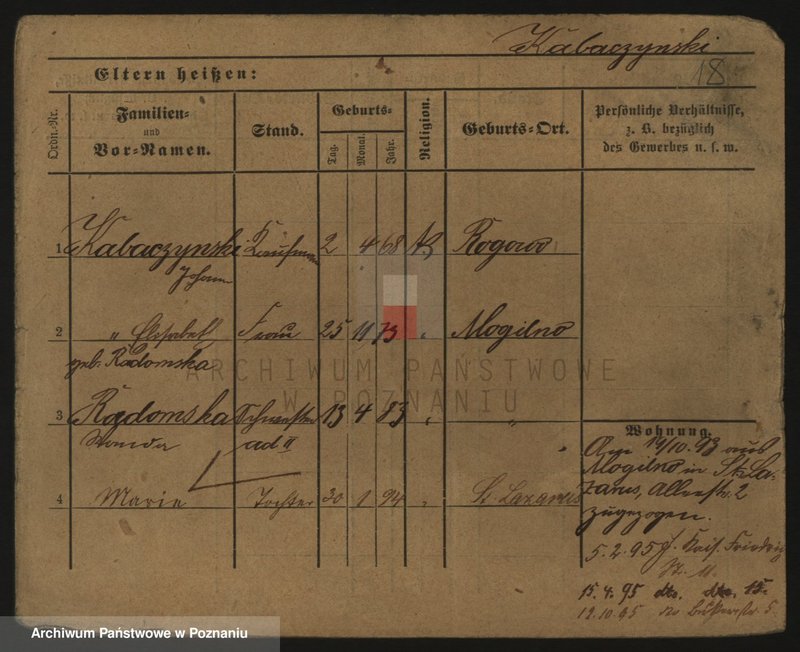 Kabaczynski
18
Eltern heißen:
Ordn.-Nr.
Familien-
und
Vor-Namen.
Stand.
Geburts-
Tag.
Monat.
Jahr.
Religion.
Geburts-Ort.
Persönliche Verhältnisse,
z. B. bezüglich
des Gewerbes u. s. w.
1 Kabaczynski Kaufmann 2 4 68 Rogowo
Johann
2 " Elisabeth Frau 25 11 73 " Mogilno
geb. Radomska
3 Radomska Schwester 13 4 83 " "
Wanda ad II
4 Marie Tochter 30 1 94 " St. Lazarus
Wohnung.
Am 19/10. 93 aus
Mogilno in St. La-
zarus, Allerstr. 2
zugezogen.
5.2.95 Kais. Friedrich
Str. 11.
15.4.95 dto. dto. 15.
12.10.95 5.
ARCHIWUM PAŃSTWOWE
W POZNANIU
Archiwum Państwowe w Poznaniu